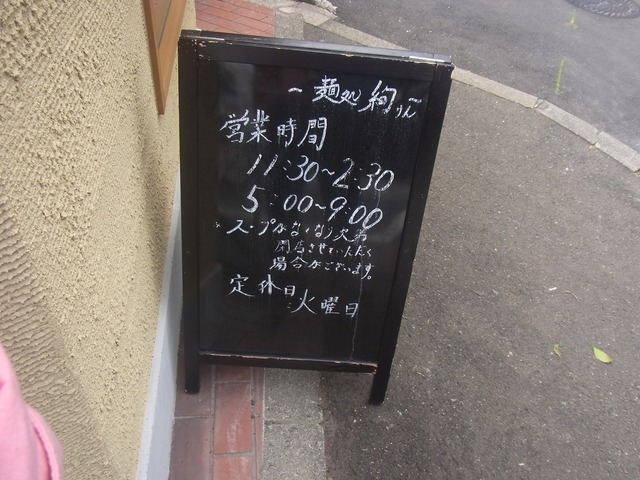 麺処 絢 りん
営業時間
11:30~2:30
5:00~9:00
スープがなくなり次第
閉店させていただく
場合がございます。
定休日
火曜日